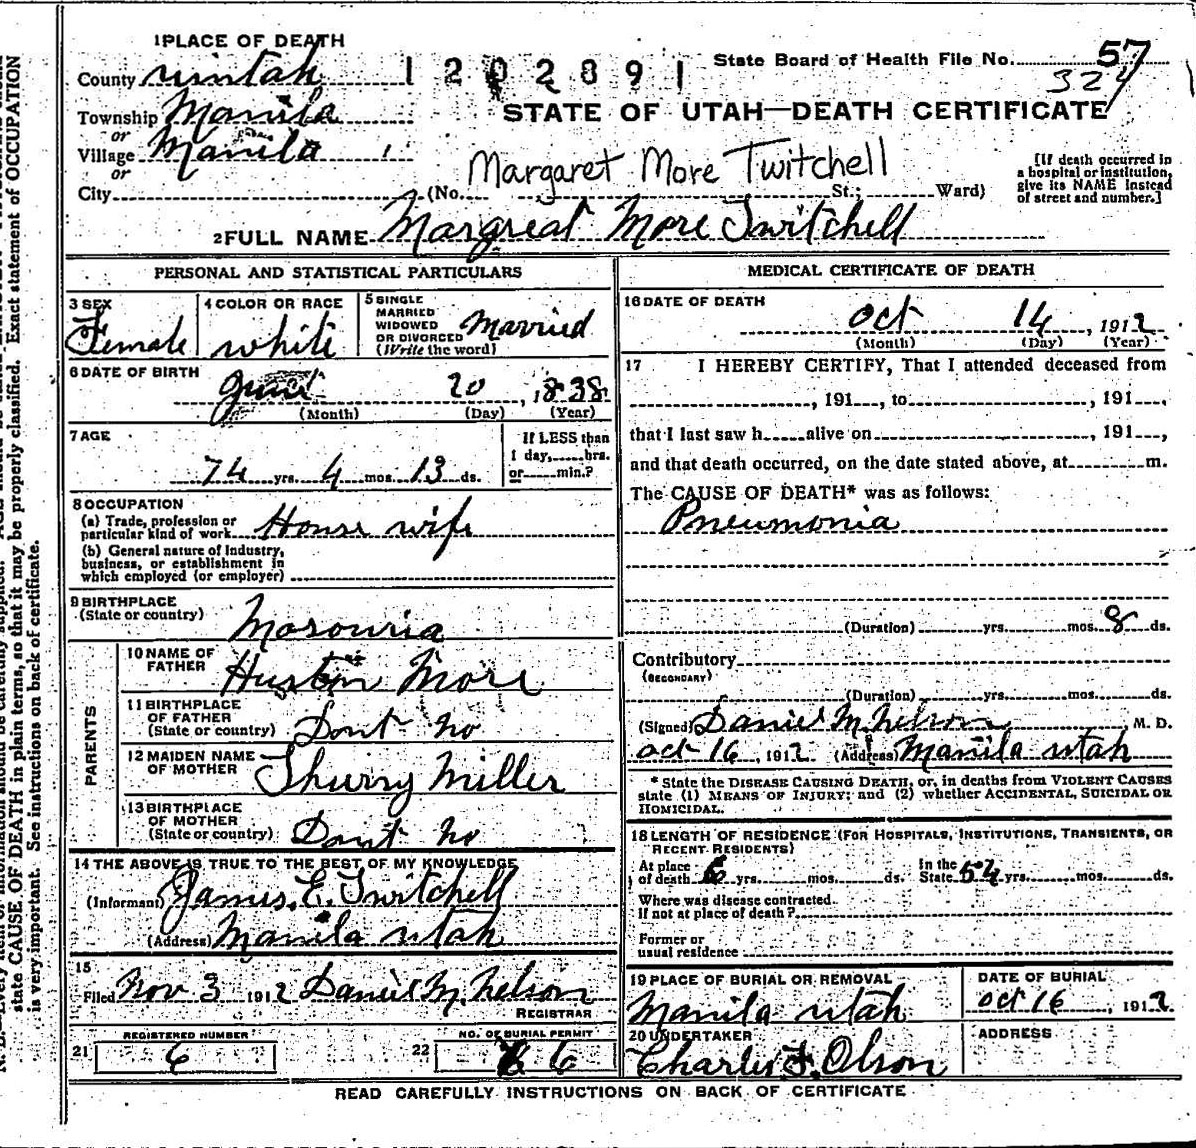 1 PLACE OF DEATH
County uintah
1202891
State Board of Health File No. 57
324
Township Manila
STATE OF UTAH—DEATH CERTIFICATE
or
Village Manila
or
Margaret More Twitchell
City (No. St.; Ward)
[If death occurred in a hospital or institution, give its NAME instead of street and number.]
2 FULL NAME Margreat More Twitchell
PERSONAL AND STATISTICAL PARTICULARS
3 SEX
Female
4 COLOR OR RACE
white
5 SINGLE
MARRIED
WIDOWED
OR DIVORCED
(Write the word)
Married
6 DATE OF BIRTH
20, 1838
(Month) (Day) (Year)
7 AGE
74 yrs. 4 mos. 13 ds.
If LESS than
1 day, hrs.
or min.?
8 OCCUPATION
(a) Trade, profession or
particular kind of work House wife
(b) General nature of Industry,
business, or establishment in
which employed (or employer)
9 BIRTHPLACE
(State or country)
Mosouria
PARENTS
10 NAME OF
FATHER
Hustin More
11 BIRTHPLACE
OF FATHER
(State or country) Dont no
12 MAIDEN NAME
OF MOTHER Thurry Miller
13 BIRTHPLACE
OF MOTHER
(State or country) Dont no
14 THE ABOVE IS TRUE TO THE BEST OF MY KNOWLEDGE
(Informant) James E. Twitchell
(Address) Manila utah
15
Filed Nov 3 1912 Daniel M. Nelson
REGISTRAR
REGISTERED NUMBER
21 6
NO. OF BURIAL PERMIT
22 6
MEDICAL CERTIFICATE OF DEATH
16 DATE OF DEATH
oct 14, 1912
(Month) (Day) (Year)
17 I HEREBY CERTIFY, That I attended deceased from
, 191 , to , 191 ,
that I last saw h alive on , 191 ,
and that death occurred, on the date stated above, at m.
The CAUSE OF DEATH* was as follows:
Pneumonia
(Duration) yrs. mos. 8 ds.
Contributory
(SECONDARY)
(Duration) yrs. mos. ds.
(Signed) Daniel M. Nelson M. D.
oct 16, 1912 (Address) Manila utah
* State the DISEASE CAUSING DEATH, or, in deaths from VIOLENT CAUSES
state (1) MEANS OF INJURY; and (2) whether ACCIDENTAL, SUICIDAL OR
HOMICIDAL.
18 LENGTH OF RESIDENCE (FOR HOSPITALS, INSTITUTIONS, TRANSIENTS, OR
RECENT RESIDENTS)
At place
of death 6 yrs. mos. ds.
In the
State 54 yrs. mos. ds.
Where was disease contracted.
If not at place of death?
Former or
usual residence
19 PLACE OF BURIAL OR REMOVAL
Manila utah
DATE OF BURIAL
oct 16, 1912
20 UNDERTAKER
Charles F. Olson
ADDRESS
READ CAREFULLY INSTRUCTIONS ON BACK OF CERTIFICATE
state CAUSE OF DEATH in plain terms, so that it may be properly classified. Exact statement of OCCUPATION
is very important. See instructions on back of certificate.